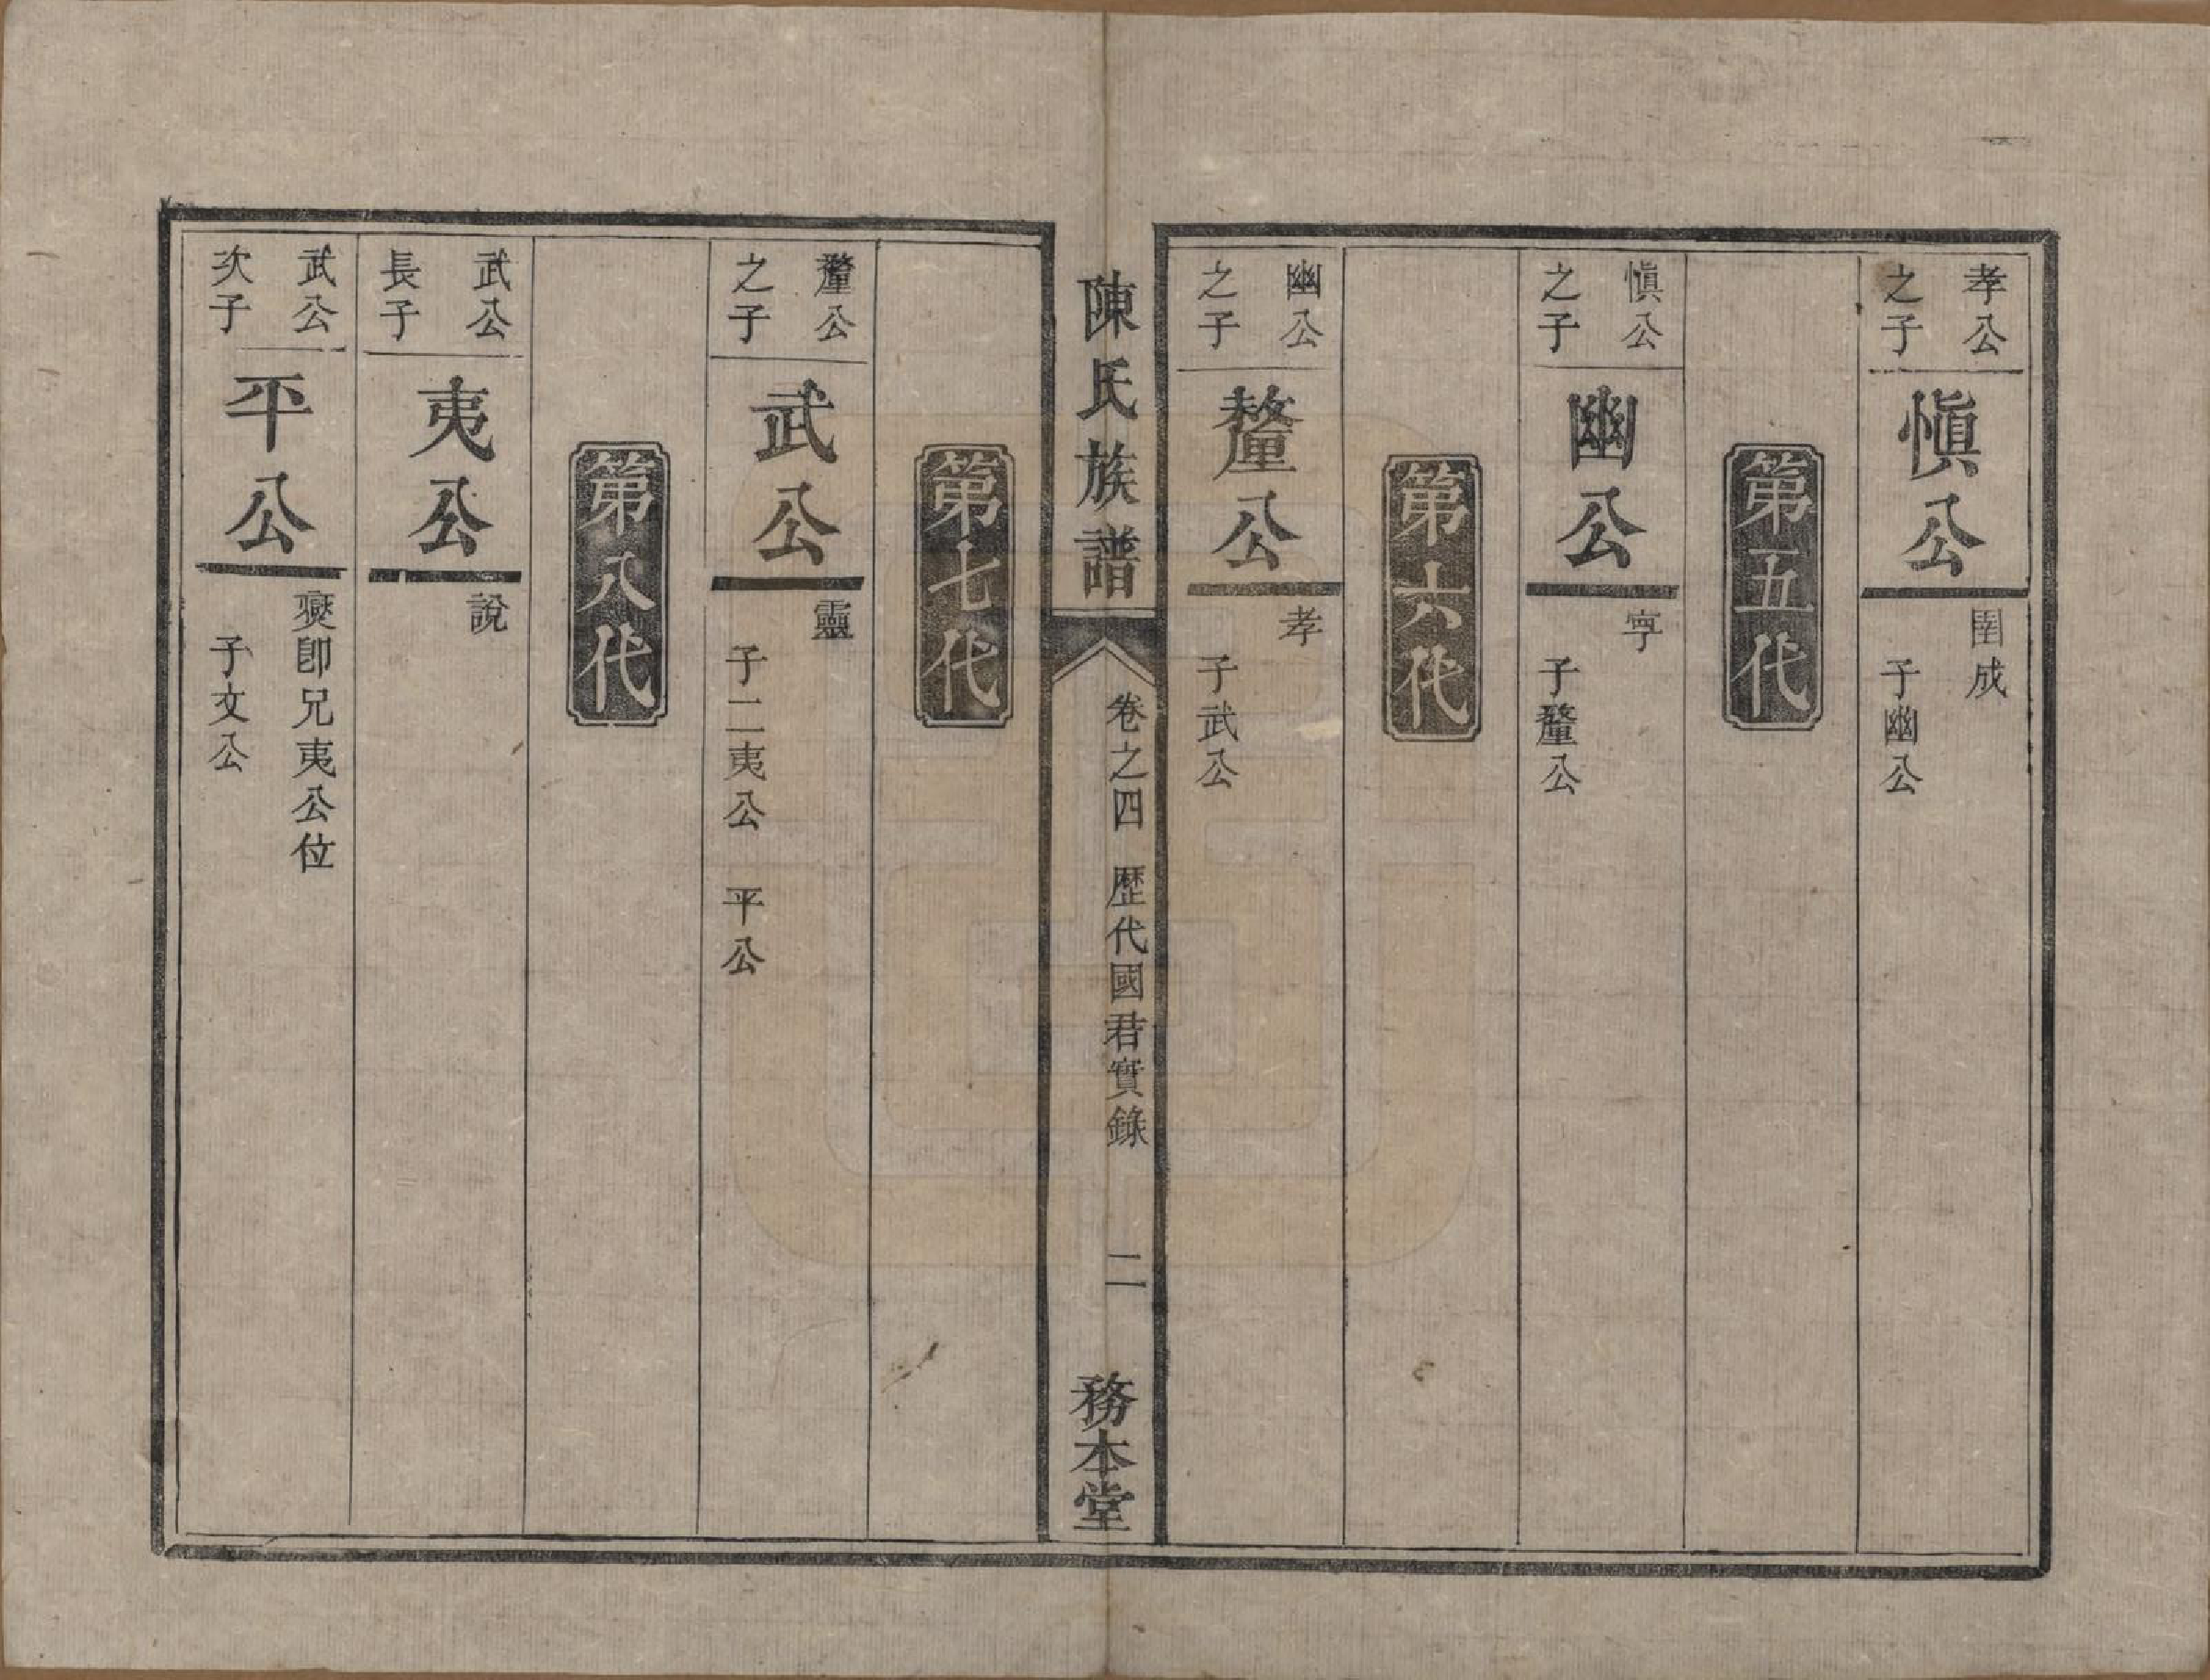 孝公
之子
慎公
圉成
子幽公
第五代
慎公
之子
幽公
寧
子釐公
第六代
幽公
之子
釐公
孝
子武公
陳氏族譜
卷之四 歷代國君實錄
二
務本堂
第七代
釐公
之子
武公
靈
子二夷公 平公
第八代
武公
長子
夷公
說
武公
次子
平公
燮卽兄夷公位
子文公